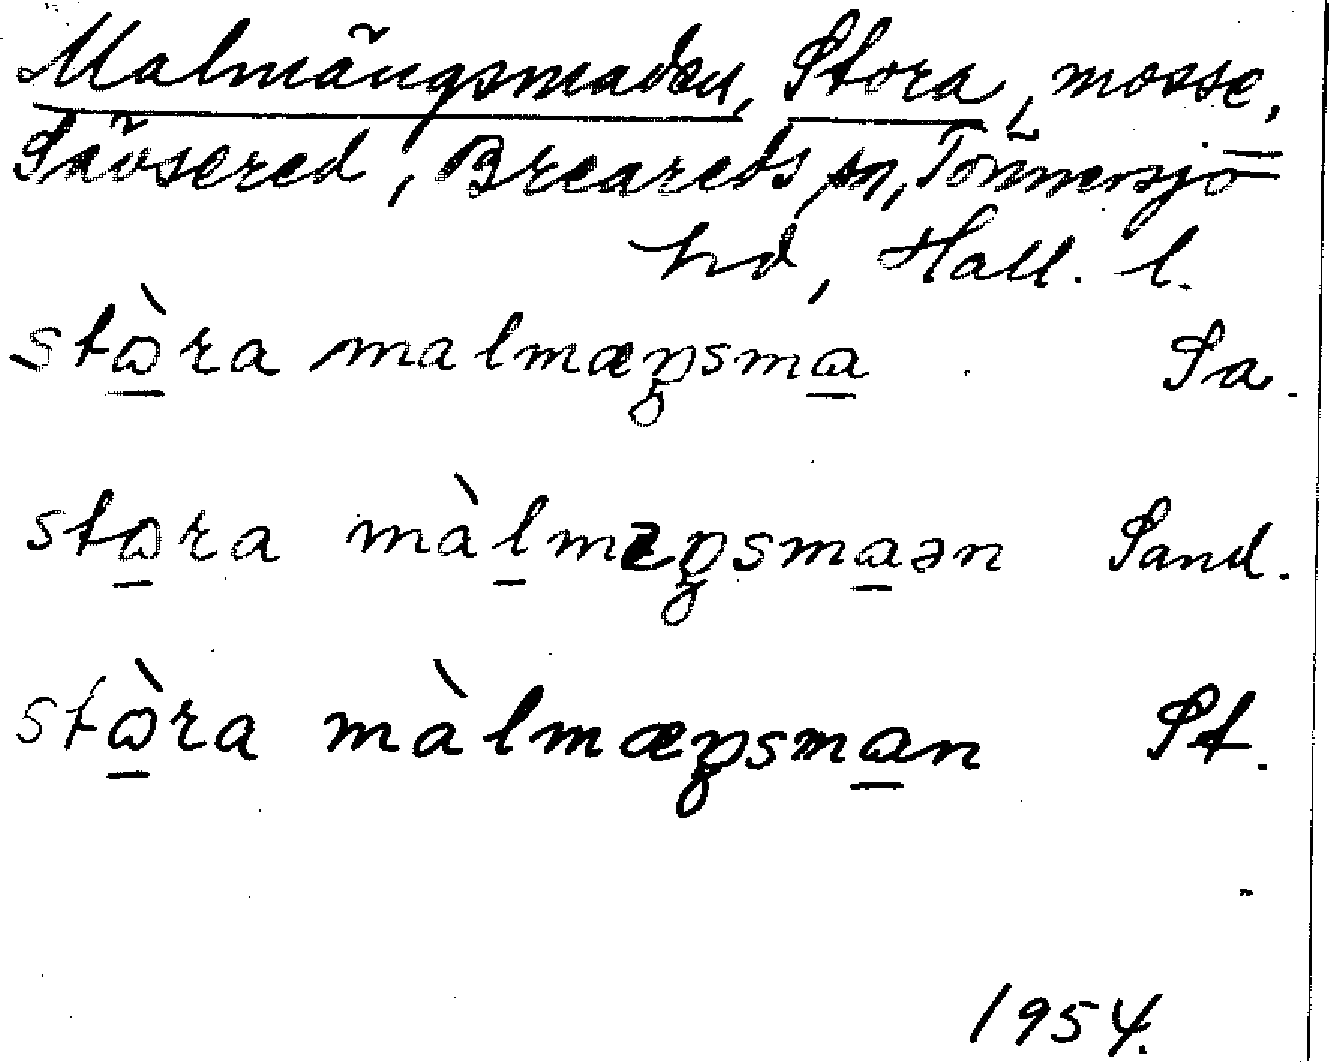 Malmängsmaden, Stora, mosse,
Snösered, Breareds sn, Tönnersjö
hd, Hall. l.
stɷ̀ra malmæŋsmɑ Sa.
stɷra màlmɛŋsmɑən Sand.
stɷ̀ra màlmæŋsmɑn St.
1954.